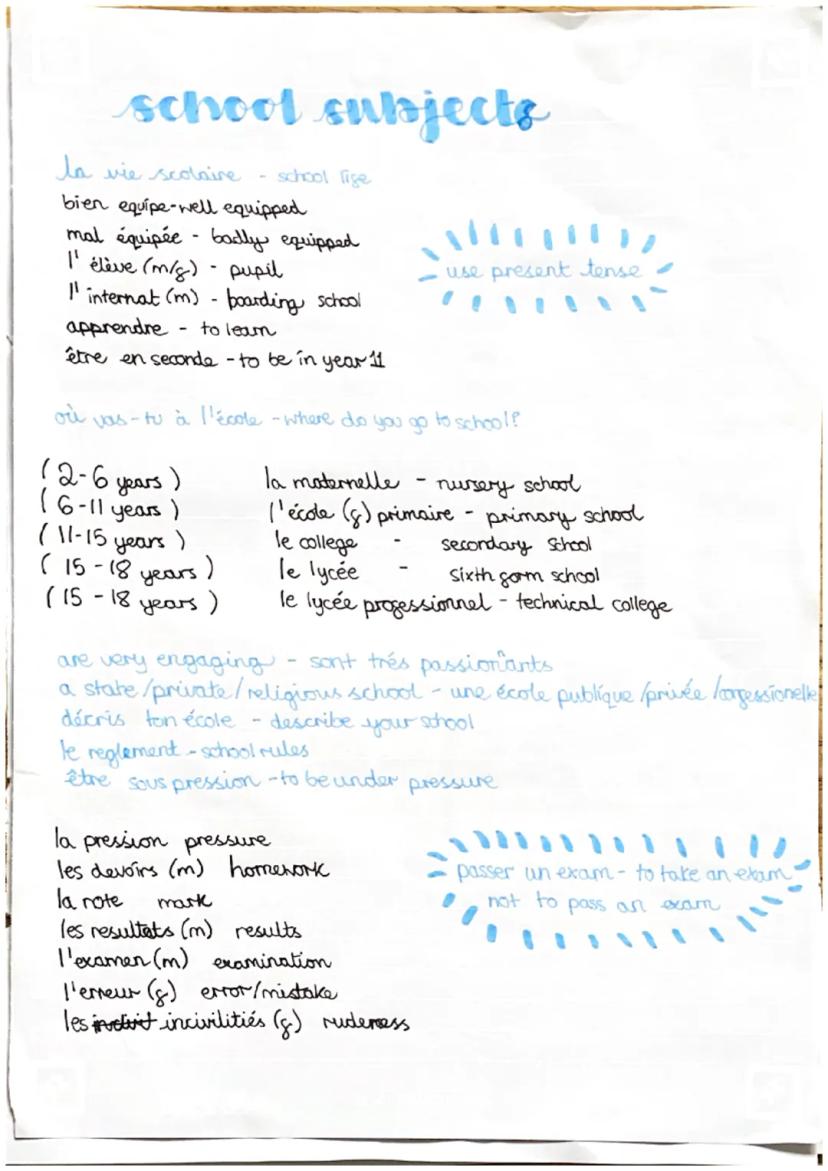 school subjects
la vie scolaire - school life
bien equipe-well equipped
mal équipée - badly equipped
l' élève (m/f) - pupil
use present tense
l' internat (m) - boarding school
apprendre - to learn
être en seconde - to be in year 11
où vas-tu à l'école - where do you go to school?
(2-6 years) la maternelle - nursery school
(6-11 years) l'école (f) primaire - primary school
(11-15 years) le college - secondary school
(15-18 years) le lycée - sixth form school
(15-18 years) le lycée professionnel - technical college
are very engaging - sont trés passion"ants
a state/private/religious school - une école publique/privée/confessionelle
décris ton école - describe your school
le reglement - school rules
être sous pression - to be under pressure
la pression pressure
les devoirs (m) homework
passer un exam - to take an exam
la note mark
not to pass an exam
les resultats (m) results
l'examen (m) examination
l'erreur (f) error/mistake
les incivilitiés (f) rudeness